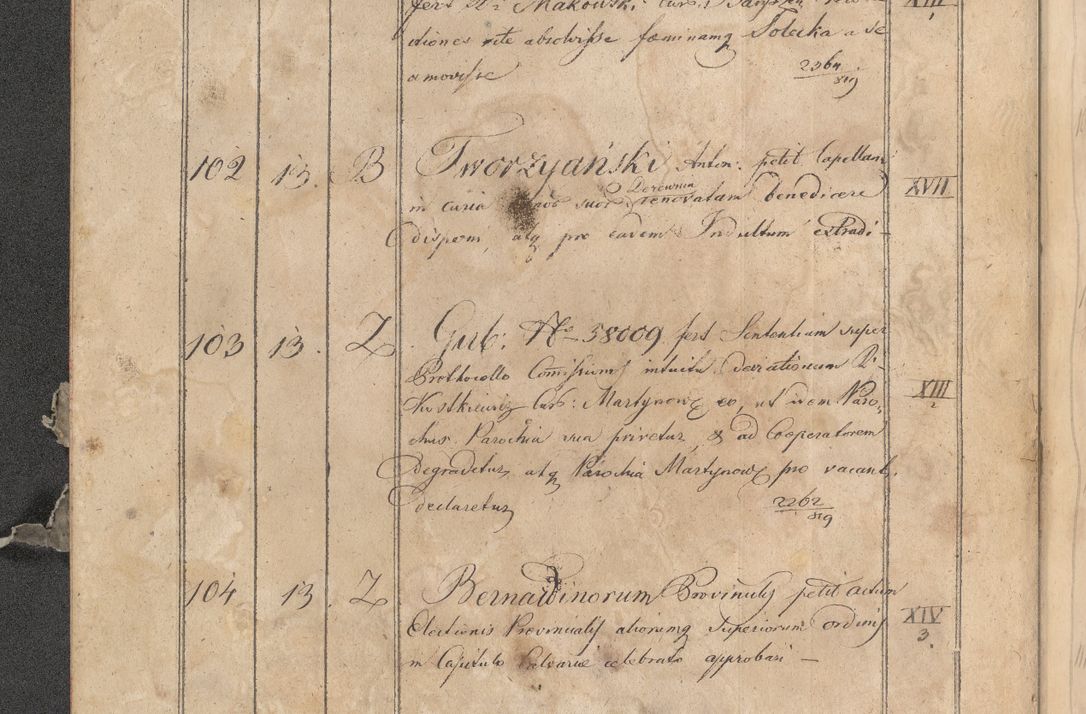 fert Makowski XIII
itiones rite absolvisse fæminamq Tolecka a se 1
amovisse 2264/819
102 13. B Tworzyański Anton: petit Capellam XVII
in curia suor Derewnia renovatam benedicere
dispom; atq pro eadem Indultum extradi –
103 13. Z Gub: No 38009 fert Sententiam super
Prothocollo Comissionis intuitu deviationum R- XIII
Curb: Martynow eo, ut idem Paro- 2
chus Parochia sua privetur, & ad Cooperatorem
degradetur, atq Parochia Martynow pro vacant.
declaretur 2262/819
104 13. Z Bernardinorum Provincialis petit actum
Electionis Provincialis aliorumq Superiorum Ordinis XIV
in Capitulo Calvariæ celebrato approbari – 3.